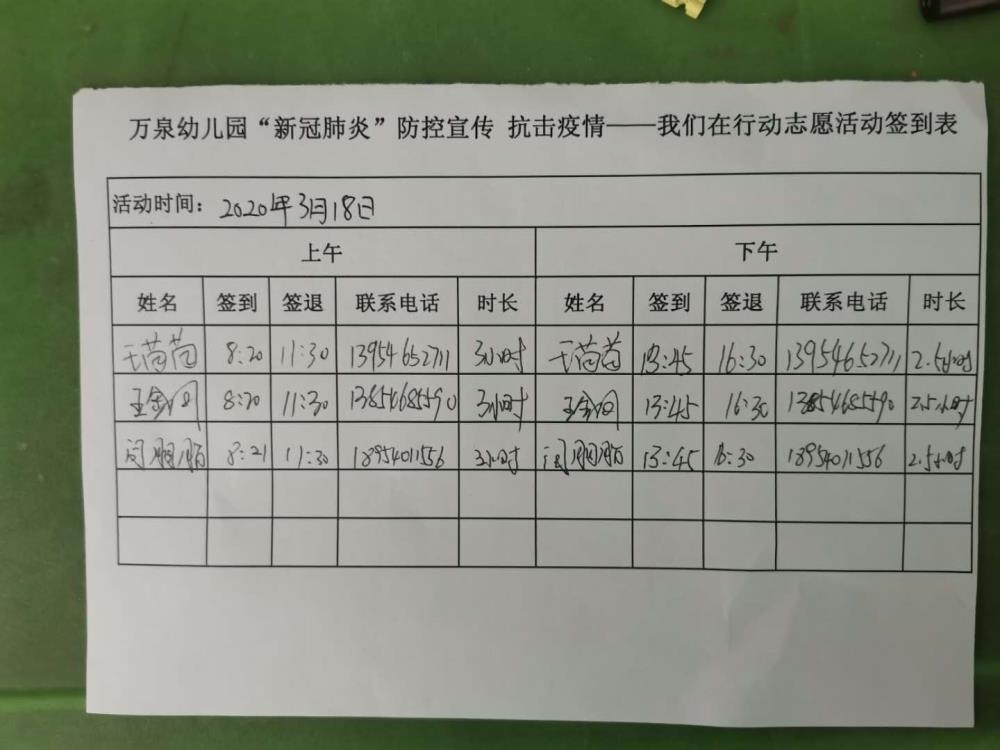 万泉幼儿园“新冠肺炎”防控宣传 抗击疫情——我们在行动志愿活动签到表
活动时间：2020年3月18日
上午 下午
姓名 签到 签退 联系电话 时长 姓名 签到 签退 联系电话 时长
8:20 11:30 13954652711 3小时 13:45 16:30 13954652711 2.5小时
8:20 11:30 13854685590 3小时 13:45 16:30 13854685590 2.5小时
8:21 11:30 18954011556 3小时 13:45 16:30 18954011556 2.5小时